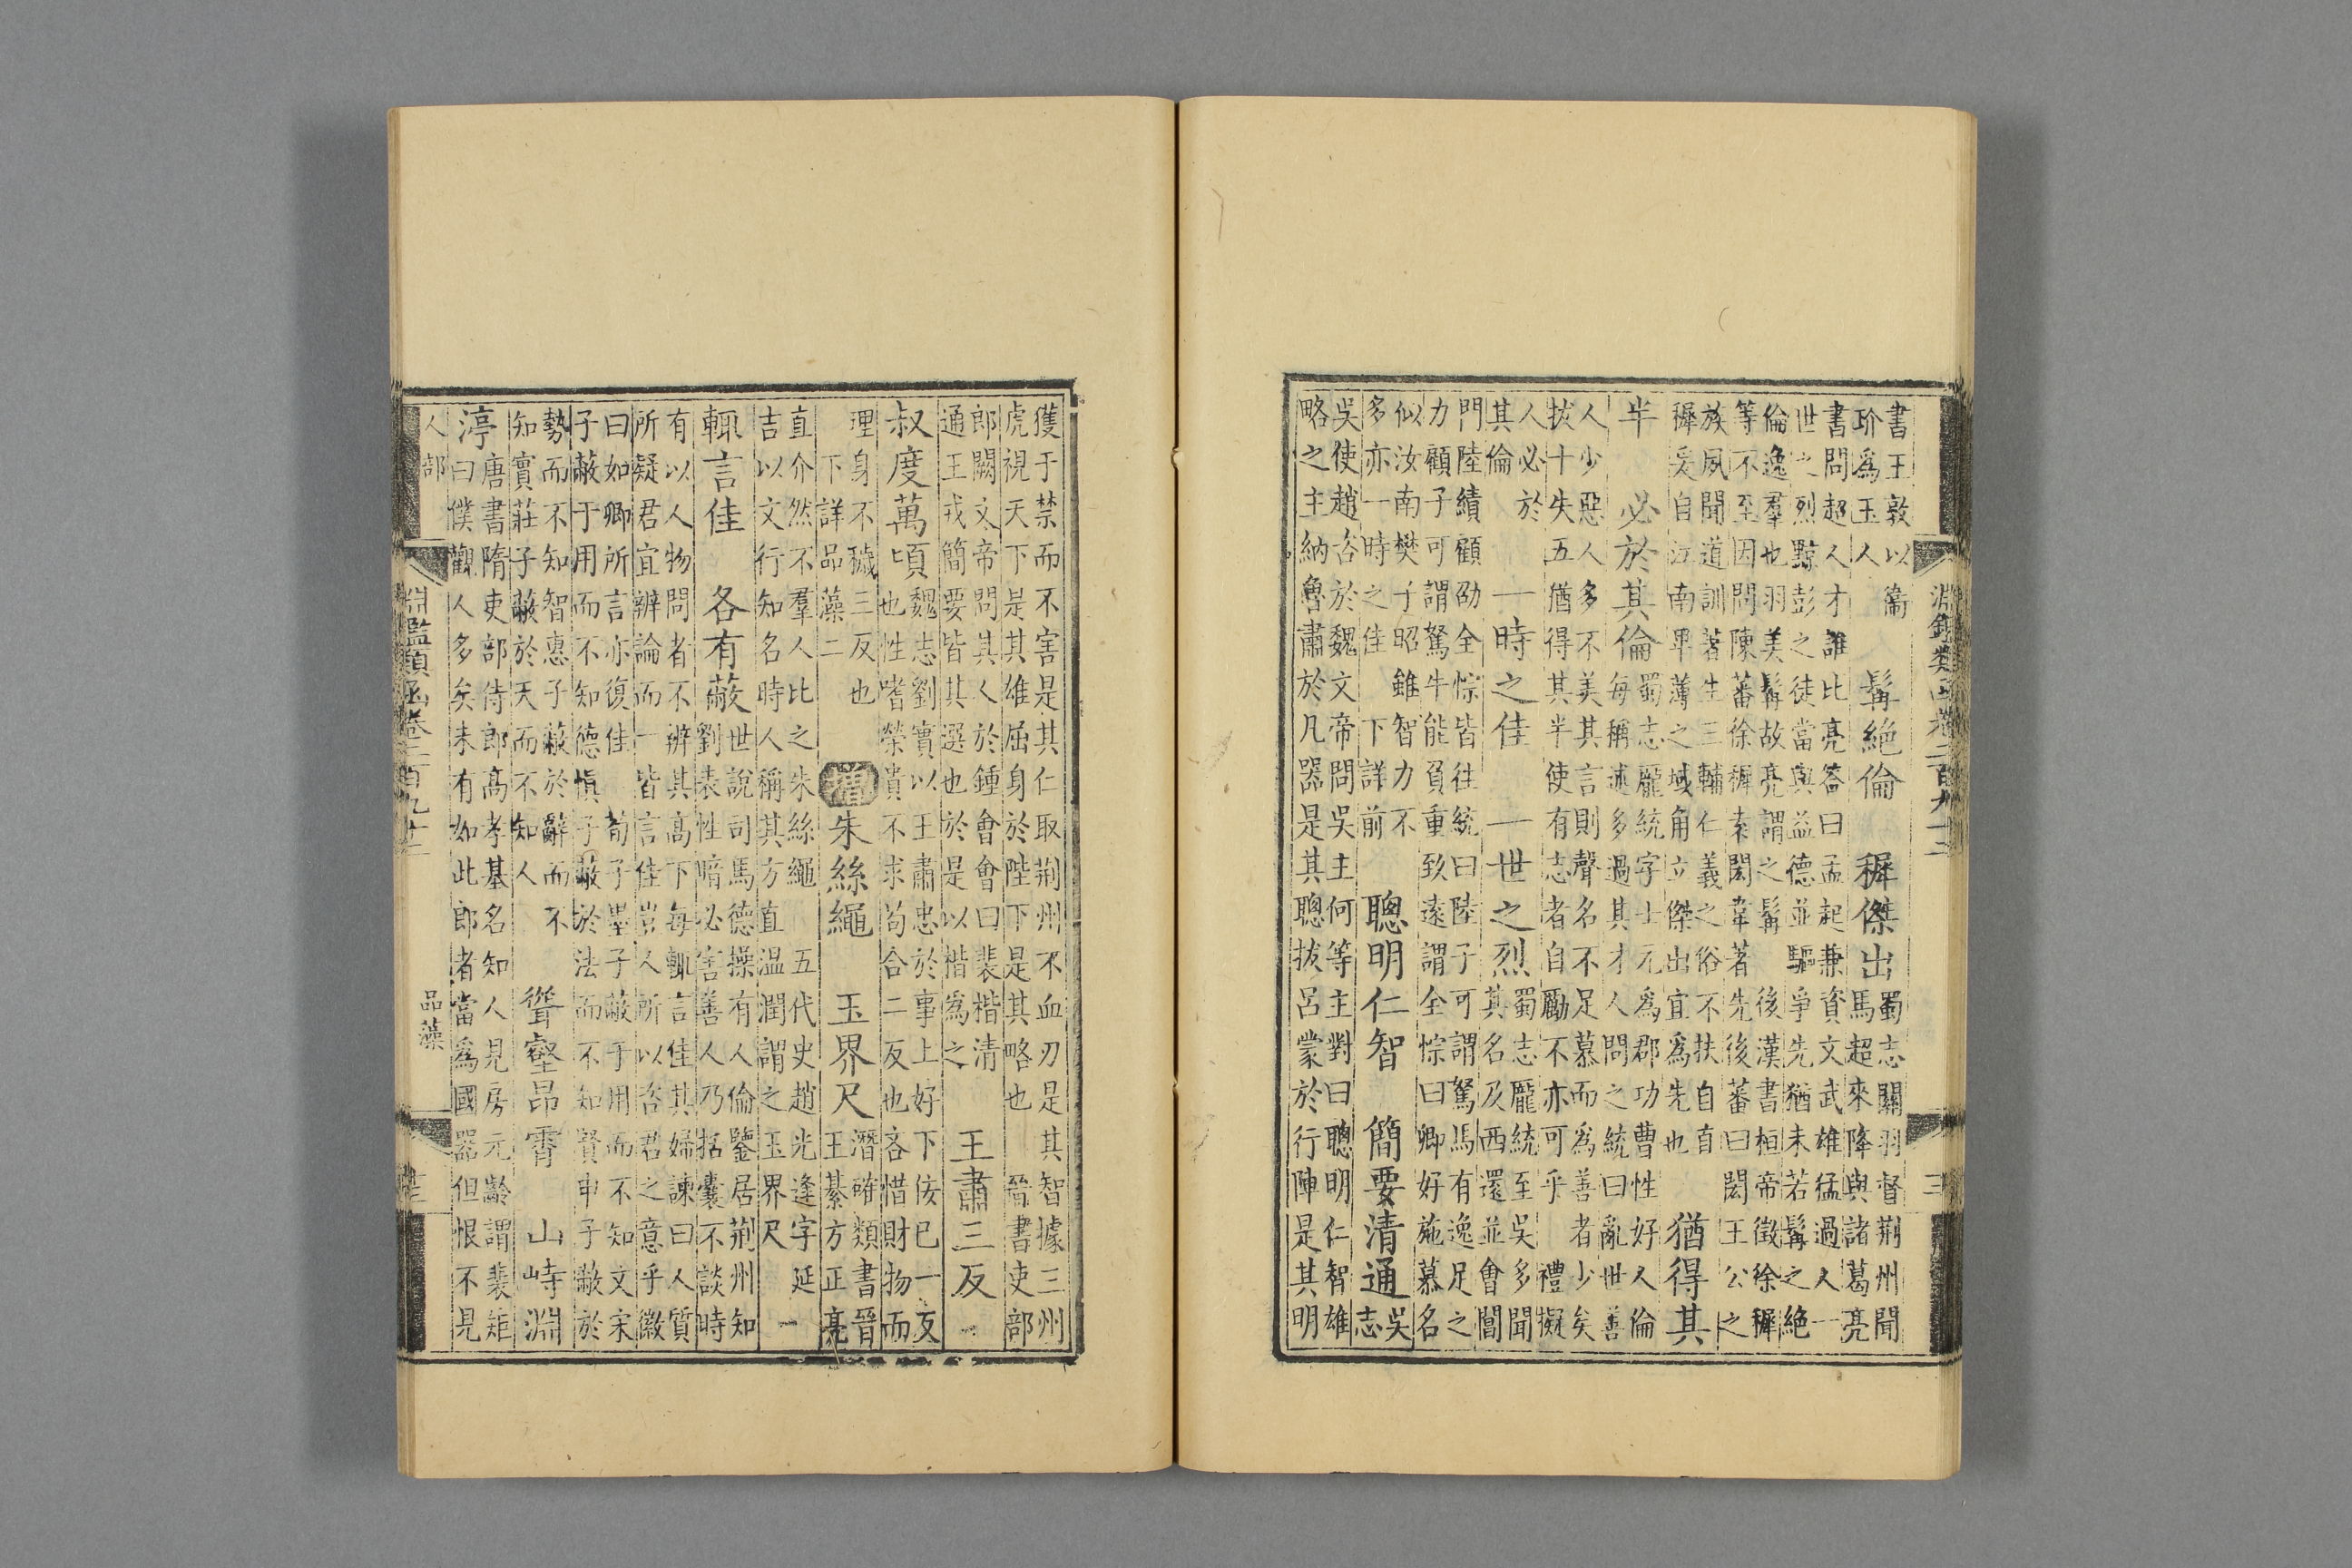 淵鑑類函卷二百九十二 三
書王敦以衞
玠爲玉人
髯絶倫 穉傑出
蜀志關羽督荆州聞
馬超來降與諸葛亮
書問超人才誰比亮答曰孟起兼資文武雄猛過人一
世之烈黥彭之徒當與益德並驅爭先猶未若髯之絶
倫逸羣也羽美髯故亮謂之髯 後漢書桓帝徵徐穉
等不至因問陳蕃徐穉袁閎韋著先後蕃曰閎王公之
族夙聞道訓著生三輔仁義之俗不扶自直
穉爰自江南卑薄之域角立傑出宜爲先也
猶得其
半 必於其倫
蜀志龐統字士元爲郡功曹性好人倫
每稱述多過其才人問之統曰亂世善
人少惡人多不美其言則聲名不足慕而爲善者少矣
拔十失五猶得其半使有志者自勵不亦可乎 禮擬
人必於
其倫
一時之佳 一世之烈
蜀志龐統至吳多聞
其名及西還並會閶
門陸績顧劭全悰皆往統曰陸子可謂駑馬有逸足之
力顧子可謂駑牛能負重致遠謂全悰曰卿好施慕名
似汝南樊子昭雖智力不
多亦一時之佳 下詳前
聰明仁智 簡要清通
吳
志
吳使趙咨於魏文帝問吳主何等主對曰聰明仁智雄
略之主納魯肅於凡器是其聰拔呂蒙於行陣是其明
獲于禁而不害是其仁取荆州不血刃是其智據三州
虎視天下是其雄屈身於陛下是其略也 晉書吏部
郎闕文帝問其人於鍾會會曰裴楷清
通王戎簡要皆其選也於是以楷爲之
王肅三反
叔度萬頃
魏志劉實以王肅忠於事上好下佞已一反
也性嗜榮貴不求苟合二反也吝惜財物而
理身不穢三反也
下詳品藻二
增朱絲繩 玉界尺
潛確類書晉
王綦方正亮
直介然不羣人比之朱絲繩 五代史趙光逢字延
吉以文行知名時人稱其方直溫潤謂之玉界尺 一
輒言佳 各有蔽
世說司馬德操有人倫鑒居荆州知
劉表性暗必害善人乃括囊不談時
有以人物問者不辨其高下每輒言佳其婦諫曰人質
所疑君宜辨論而一皆言佳豈人所以咨君之意乎徽
曰如卿所言亦復佳 荀子墨子蔽于用而不知文宋
子蔽于用而不知德慎子蔽於法而不知賢申子蔽於
勢而不知智惠子蔽於辭而不
知實莊子蔽於天而不知人
聳壑昂霄 山峙淵
渟
唐書隋吏部侍郎高孝基名知人見房元齡謂裴矩
曰僕觀人多矣未有如此郎者當爲國器但恨不見
人部 淵鑑類函卷二百九十二 品藻